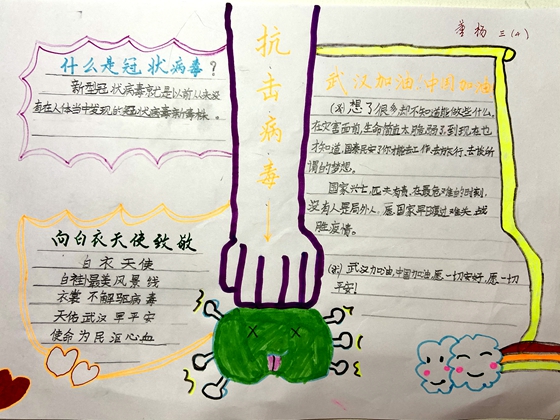 三(4)
什么是冠状病毒?
新型冠状病毒就是以前从未没
有在人体当中发现的冠状病毒新毒株。
向白衣天使致敬
白衣天使
白褂最美风景线
衣裳不解驱病毒
天佑武汉早平安
使命为民沤心血
抗击病毒
武汉加油,中国加油
想了很多却不知道能做些什么,
在灾害面前,生命简直太脆弱了,到现在也
才知道,国泰民安了你才能去工作,去旅行,去做所
谓的梦想。
国家兴亡,匹夫有责,在最危难的时刻,
没有人是局外人,愿国家早日渡过难关,战
胜疫情。
武汉加油,中国加油,愿一切安好,愿一切
平安!